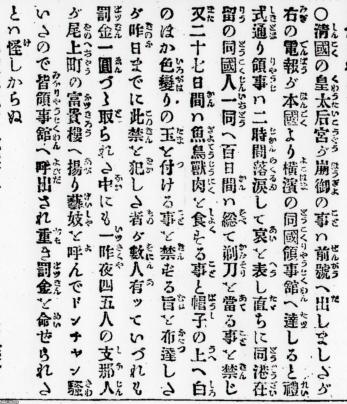 ○清國の皇太后宮が崩御の事ハ前號へ出しましたが
右の電報が本國より横濱の同國領事館へ達しると禮
式通り領事ハ二時間落涙して哀を表し直ちに同港在
留の同國人一同へ百日間ハ総て剃刀を當る事を禁じ
又二十七日間ハ魚鳥獣肉を食さる事と帽子の上へ白
のほか色變りの玉を付ける事を禁ずる旨を布達しさ
が昨日までに此禁を犯しさ者が數人有ッていづれも
罰金一圓づゝ取られさ中にも一昨夜四五人の支那人
が尾上町の富貴樓へ揚り藝妓を呼んでドンチャン騒
いさので皆領事館へ呼出され重き罰金を命ぜられさ
とハ怪しからぬ